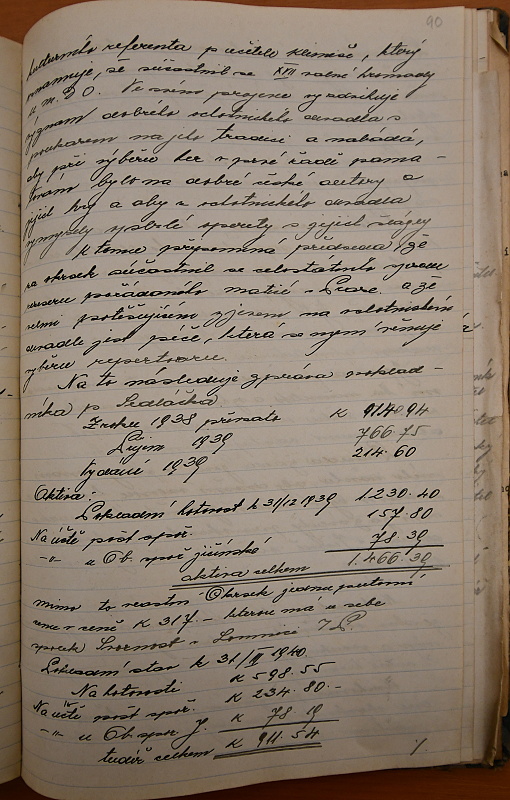 90
kulturního referenta p učitele Kliměše, který
oznamuje, že súčastnil se XIII valné hromady
U.M.D.O. Ve svém projevu vyzdvihuje
význam dobrého ochotnického divadla s
poukazem na jeho tradici a nabádá,
aby při výběru her v prvé řadě pama-
továno bylo na dobré české autory a
jejich hry a aby z ochotnického divadla
vymizely operety s jejich šlágry
K tomu připomíná předseda, že
za okrsek súčastnil se celostátního sjezdu
pořádaného maticí v Praze a že
velmi potěšujícím zjevem na ochotnickém
divadle jest péče, která se nyní věnuje
výběru repertoiru.
Na to následuje zpráva poklad-
níka p Sedláčka
Z roku 1938 přineseno K 914.94
Příjem 1939 766.75
Vydání 1939 214.60
Aktiva:
Pokladní hotovost k 31/12 1939 1.230.40
Na účtě pošt spoř. 157.80
-"- u Ob. spoř jičínské 78.39
aktiva celkem 1.466.39
mimo to vlastní Okrsek jednu putovní
cenu v ceně K 317.- kterou má u sebe
spolek Svornost v Lomnici n/P.
Pokladní stav k 31/III 1940
Na hotovosti K 598.55
Na účtě pošt spoř. K 234.80.-
-"- u Ob. spoř. J. K 78.19
tudíž celkem K 911.54